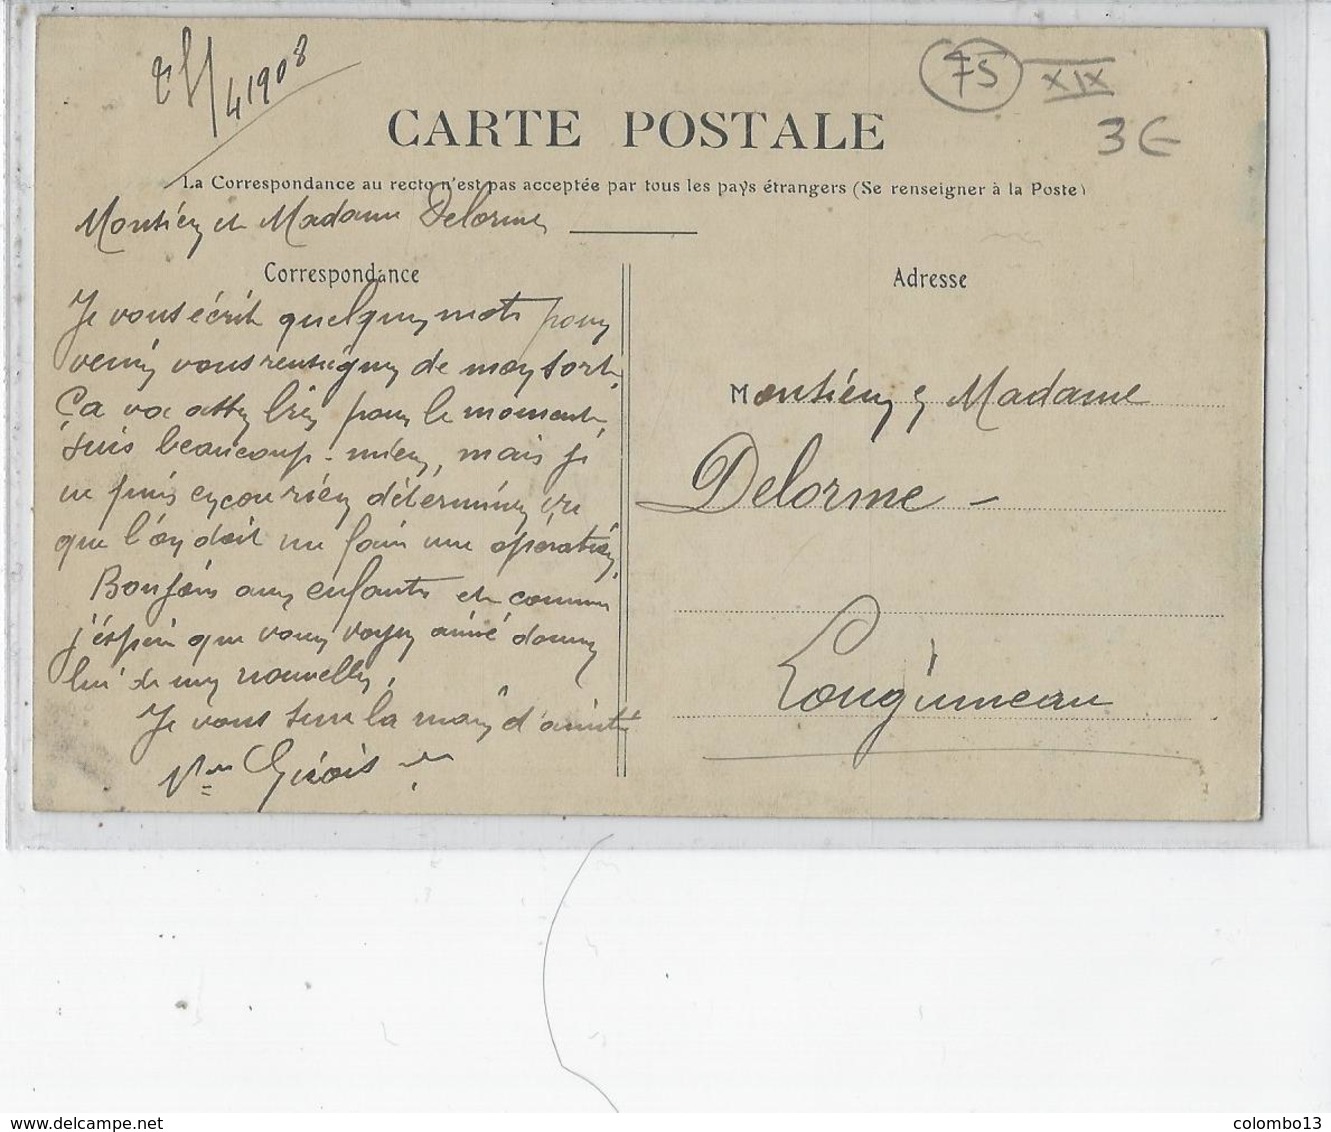 41908
75 XIX
3€
CARTE POSTALE
La Correspondance au recto n'est pas acceptée par tous les pays étrangers (Se renseigner à la Poste)
Monsieur et Madame Delorme
Correspondance
Je vous écrit quelques mots pour
venir vous renseigner de mon sort.
Ça va assez bien pour le moment,
suis beaucoup mieux, mais je
ne puis encore rien déterminer
que l'on doit me faire une opération.
Bonjour aux enfants et comme
j'espère que vous voyez aimé donnez
lui de mes nouvelles.
Je vous serre la main d'amitié
Adresse
Monsieur & Madame
Delorme
Longjumeau
colombo13